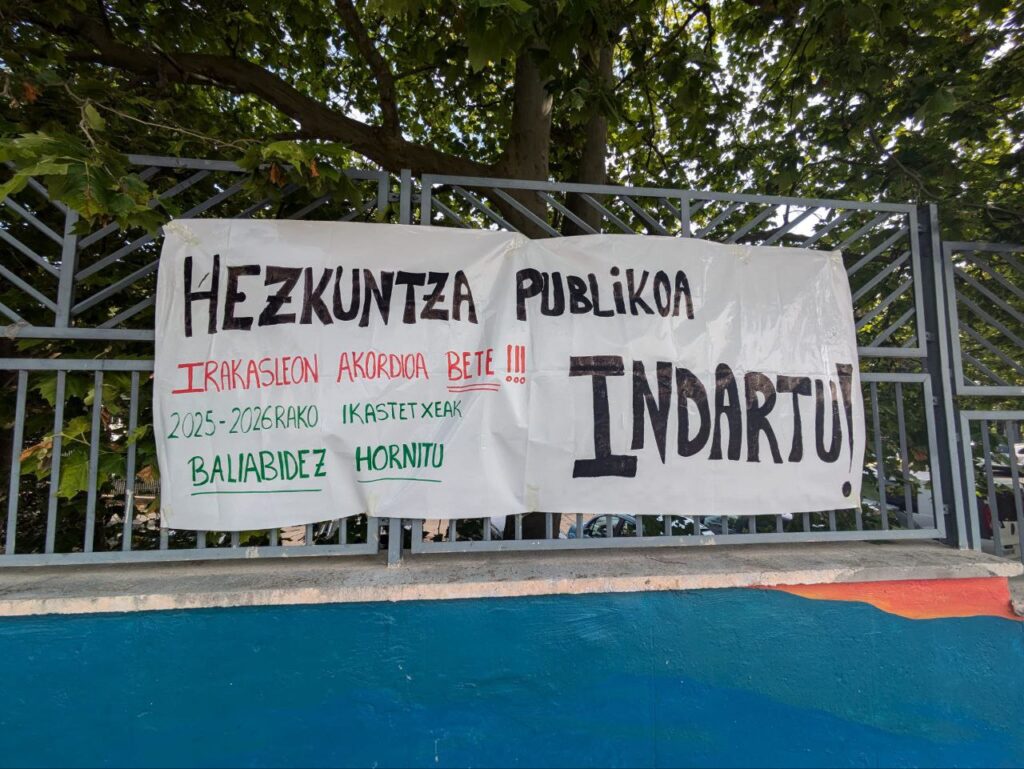 HEZKUNTZA PUBLIKOA
INDARTU!
IRAKASLEON AKORDIOA BETE !!!
2025-2026RAKO IKASTETXEAK
BALIABIDEZ HORNITU